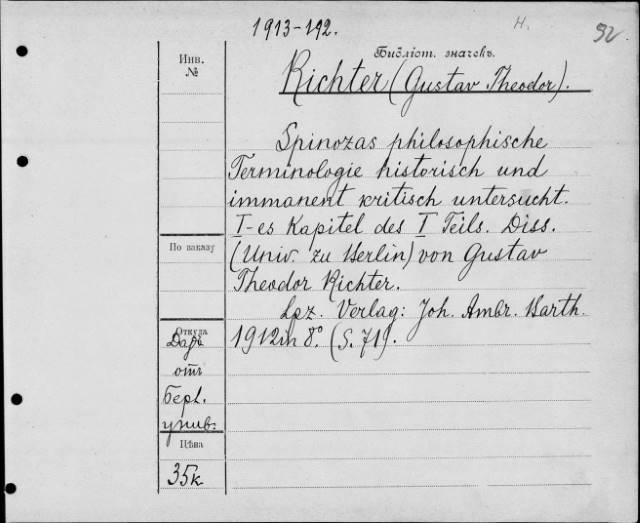 1913-192.
H.
92
Инв.
№
Библіот. значекъ.
Richter (Gustav Theodor).
Spinozas philosophische
Terminologie historisch und
immanent kritisch untersucht.
I-es Kapitel des I Teils. Diss.
По заказу
(Univ. zu Berlin) von Gustav
Theodor Richter.
Lpz. Verlag: Joh. Ambr. Barth.
Откуда
1912 in 8°. (S. 71).
Даръ
отъ
Берл.
унив.
Цѣна
35к